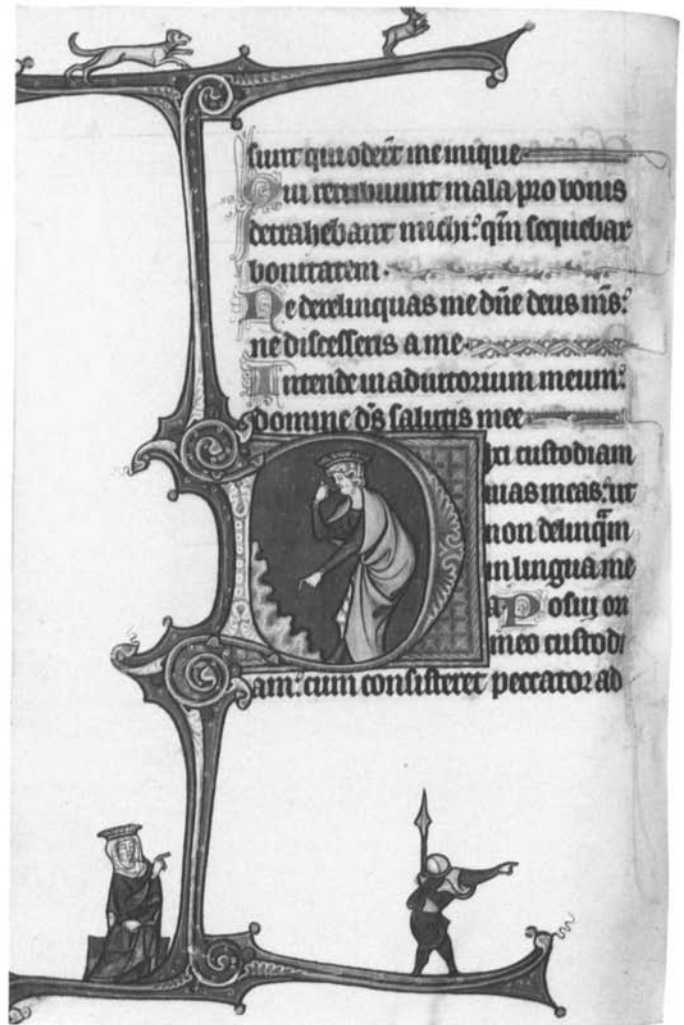 sunt qui oder̄t me inique
Qui retribuunt mala pro bonis
detrahebant michi: qm̄ sequebar
bonitatem.
Ne derelinquas me dn̄e deus ms̄:
ne discesseris a me
Intende in adiutorium meum:
domine ds̄ salutis mee
Dixi custodiam
uias meas: ut
non delinqam
in lingua me
a Posui ori
meo custodi
am: cum consisteret peccator ad